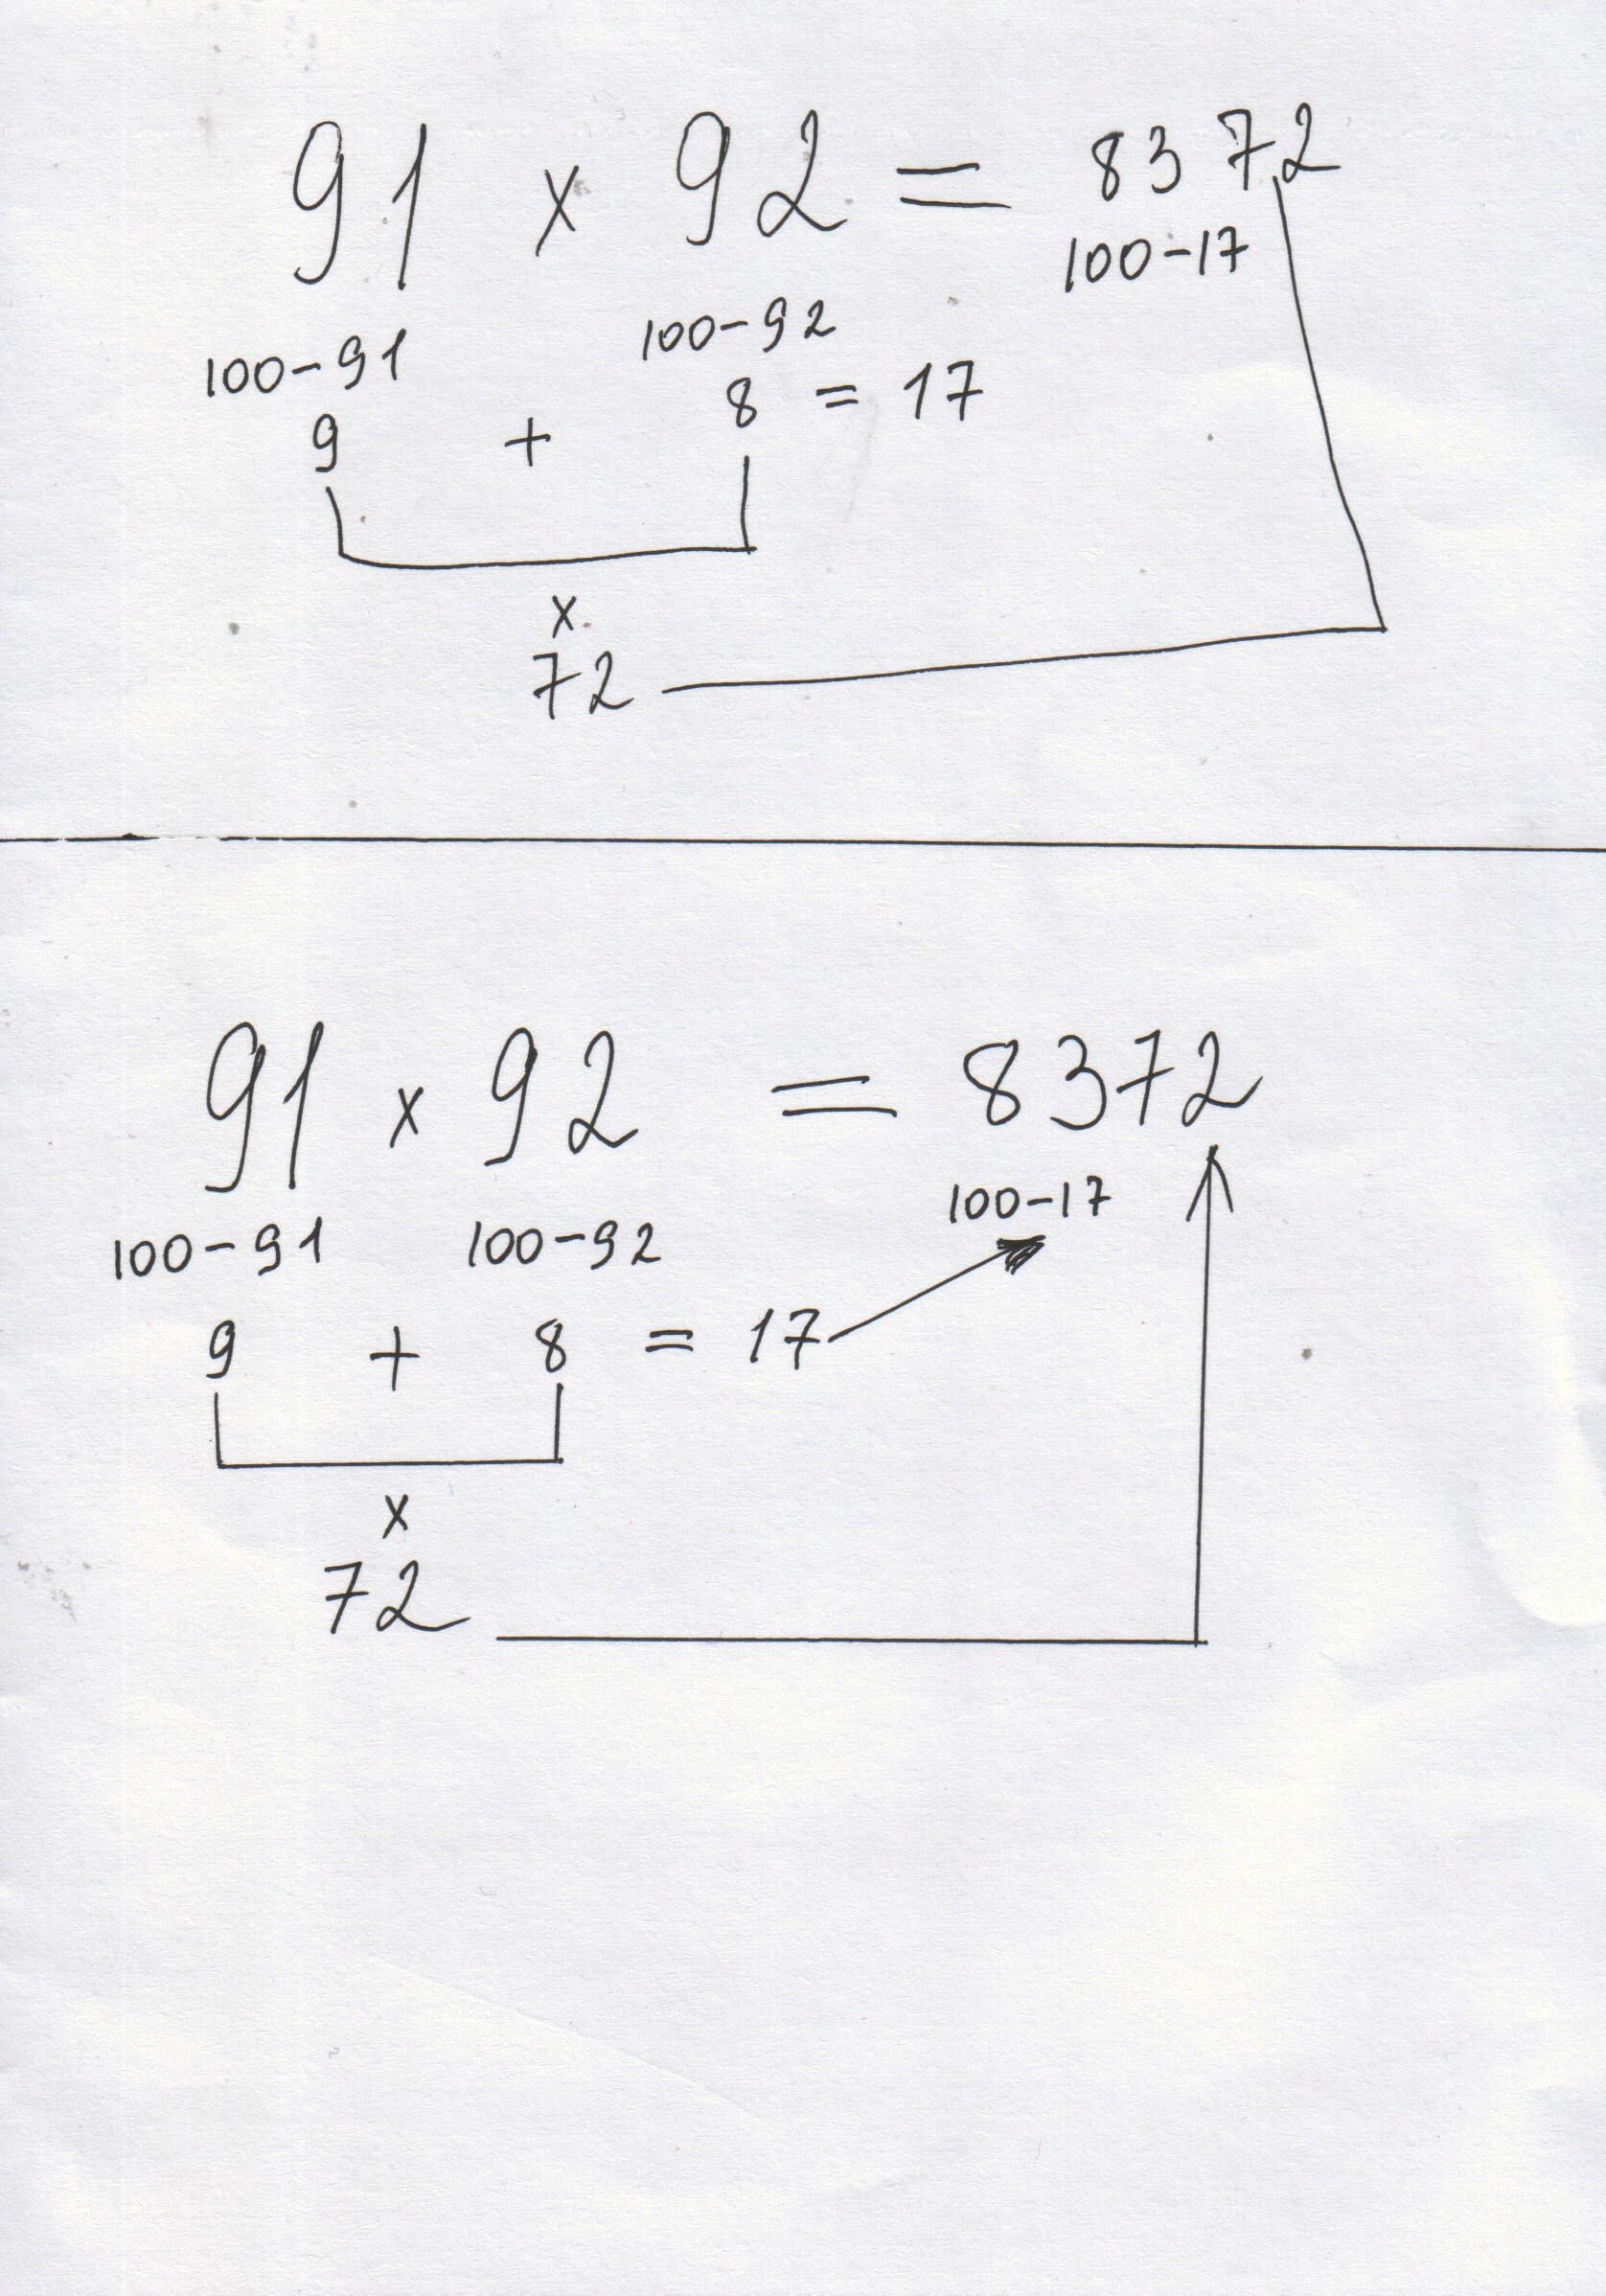 91 x 92 = 8372
100-17
100-91 100-92
9 + 8 = 17
x
72
91 x 92 = 8372
100-17
100-91 100-92
9 + 8 = 17
x
72